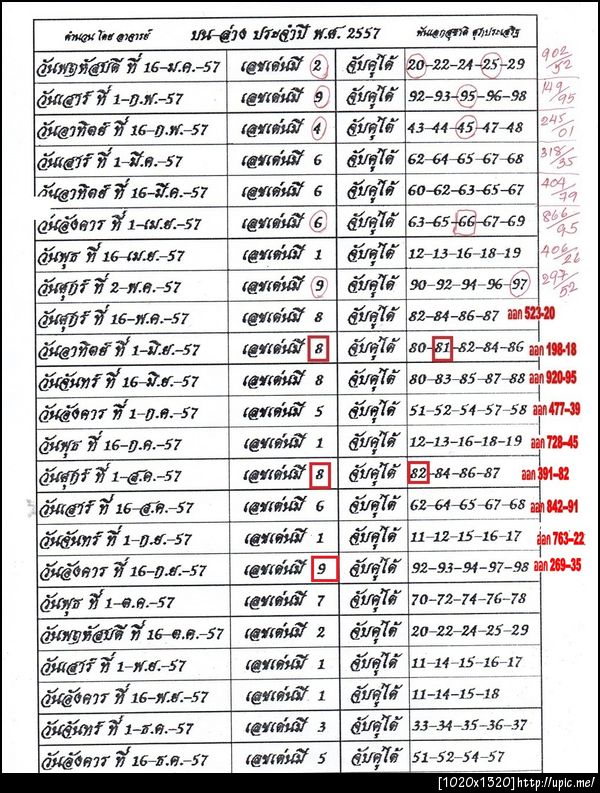 คำนวน โดย อาจารย์ บน-ล่าง ประจำปี พ.ศ. 2557 พันเอกสุชาติ สุภประเสริฐ
วันพฤหัสบดี ที่ 16-ม.ค.-57 เลขเด่นมี 2 จับคู่ได้ 20-22-24-25-29 902/52
วันเสาร์ ที่ 1-ก.พ.-57 เลขเด่นมี 9 จับคู่ได้ 92-93-95-96-98 149/95
วันอาทิตย์ ที่ 16-ก.พ.-57 เลขเด่นมี 4 จับคู่ได้ 43-44-45-47-48 245/01
วันเสาร์ ที่ 1-มี.ค.-57 เลขเด่นมี 6 จับคู่ได้ 62-64-65-67-68 318/35
วันอาทิตย์ ที่ 16-มี.ค.-57 เลขเด่นมี 6 จับคู่ได้ 60-62-63-65-67 404/79
วันอังคาร ที่ 1-เม.ย.-57 เลขเด่นมี 6 จับคู่ได้ 63-65-66-67-69 866/95
วันพุธ ที่ 16-เม.ย.-57 เลขเด่นมี 1 จับคู่ได้ 12-13-16-18-19 406/26
วันศุกร์ ที่ 2-พ.ค.-57 เลขเด่นมี 9 จับคู่ได้ 90-92-94-96-97 297/52
วันศุกร์ ที่ 16-พ.ค.-57 เลขเด่นมี 8 จับคู่ได้ 82-84-86-87 ออก 523-20
วันอาทิตย์ ที่ 1-มิ.ย.-57 เลขเด่นมี 8 จับคู่ได้ 80-81-82-84-86 ออก 198-18
วันจันทร์ ที่ 16-มิ.ย.-57 เลขเด่นมี 8 จับคู่ได้ 80-83-85-87-88 ออก 920-95
วันอังคาร ที่ 1-ก.ค.-57 เลขเด่นมี 5 จับคู่ได้ 51-52-54-57-58 ออก 477-39
วันพุธ ที่ 16-ก.ค.-57 เลขเด่นมี 1 จับคู่ได้ 12-13-16-18-19 ออก 728-45
วันศุกร์ ที่ 1-ส.ค.-57 เลขเด่นมี 8 จับคู่ได้ 82-84-86-87 ออก 391-82
วันเสาร์ ที่ 16-ส.ค.-57 เลขเด่นมี 6 จับคู่ได้ 62-64-65-67-68 ออก 842-91
วันจันทร์ ที่ 1-ก.ย.-57 เลขเด่นมี 1 จับคู่ได้ 11-12-15-16-17 ออก 763-22
วันอังคาร ที่ 16-ก.ย.-57 เลขเด่นมี 9 จับคู่ได้ 92-93-94-97-98 ออก 269-35
วันพุธ ที่ 1-ต.ค.-57 เลขเด่นมี 7 จับคู่ได้ 70-72-74-76-78
วันพฤหัสบดี ที่ 16-ต.ค.-57 เลขเด่นมี 2 จับคู่ได้ 20-22-24-25-29
วันเสาร์ ที่ 1-พ.ย.-57 เลขเด่นมี 1 จับคู่ได้ 11-14-15-16-17
วันอังคาร ที่ 16-พ.ย.-57 เลขเด่นมี 1 จับคู่ได้ 11-14-15-18
วันจันทร์ ที่ 1-ธ.ค.-57 เลขเด่นมี 3 จับคู่ได้ 33-34-35-36-37
วันอังคาร ที่ 16-ธ.ค.-57 เลขเด่นมี 5 จับคู่ได้ 51-52-54-57
[1020x1320]http://upic.me/